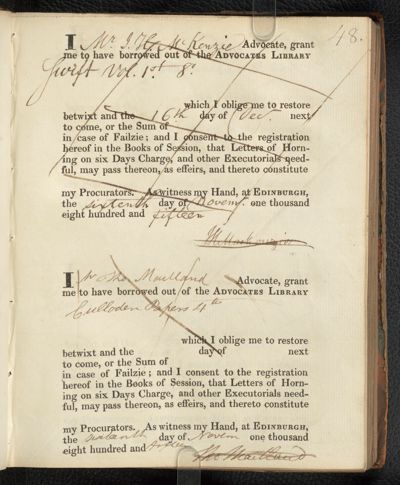 48.
I Mr J. H. McKenzie Advocate, grant
me to have borrowed out of the ADVOCATES LIBRARY
Swift Vol. 1st 8o
which I oblige me to restore
betwixt and the 16th day of Decr. next
to come, or the Sum of
in case of Failzie; and I consent to the registration
hereof in the Books of Session, that Letters of Horn-
ing on six Days Charge, and other Executorials need-
ful, may pass thereon, as effeirs, and thereto constitute
my Procurators. As witness my Hand, at EDINBURGH,
the sixteenth day of Novemr one thousand
eight hundred and fifteen
I Mr Tho Maitland Advocate, grant
me to have borrowed out of the ADVOCATES LIBRARY
Culloden Papers 4to
which I oblige me to restore
betwixt and the day of next
to come, or the Sum of
in case of Failzie; and I consent to the registration
hereof in the Books of Session, that Letters of Horn-
ing on six Days Charge, and other Executorials need-
ful, may pass thereon, as effeirs, and thereto constitute
my Procurators. As witness my Hand, at EDINBURGH,
the sixteenth day of Novem one thousand
eight hundred and
Tho Maitland